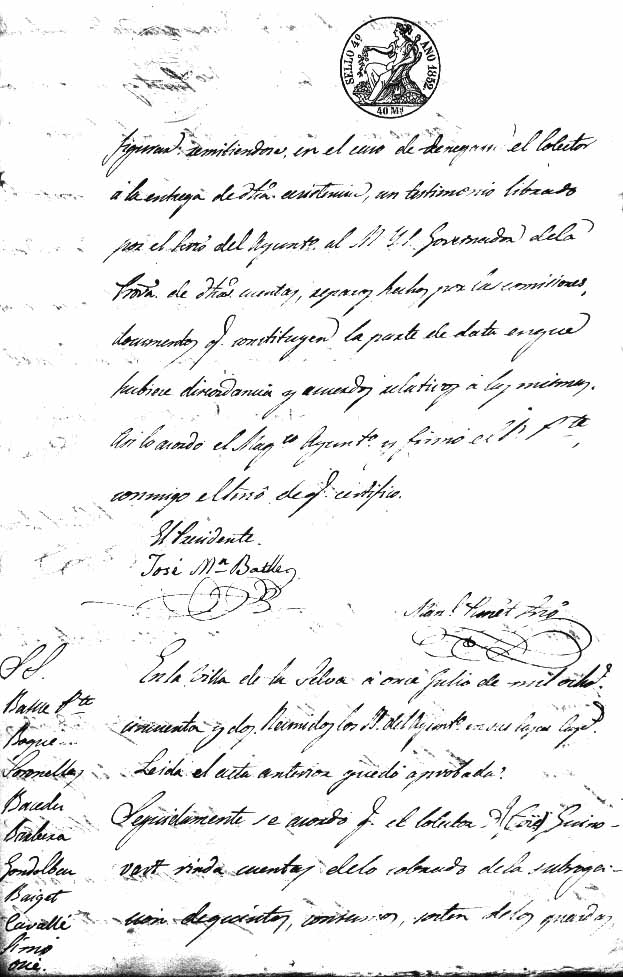 SELLO 4º AÑO 1852.
40 Ms
figuran remitiendose, en el caso de denegar el Colector
á la entrega de dha. existencia, un testimonio librado
por el Srio. del Ayuntº. al M. Y. S. Governador de la
Prova. de dhas. cuentas, reparos hechos por las comisiones,
documentos q. constituyen la parte de data en que
hubiese discordancia y acuerdos relativos á las mismas.
Asi lo acordó el Magco. Ayuntº. y firmó el Sr. Pte.,
conmigo el Srio. de q. certifico.
El Presidente.
José Mª Batlle
Manl. Srio
En la Villa de la Selva á once Julio de mil ocho
cincuenta y dos Reunidos los SS. del Ayuntº. en sus
Leida el acta anterior quedó aprobada.
Seguidamente se acordó q. el Colector
rinda cuentas de lo cobrado de la subroga-
cion de quintos, consumos, de los guardas
SS.
Batlle Pte
Roque
Barceló
Gondolbeu
Baiget
Cavallé